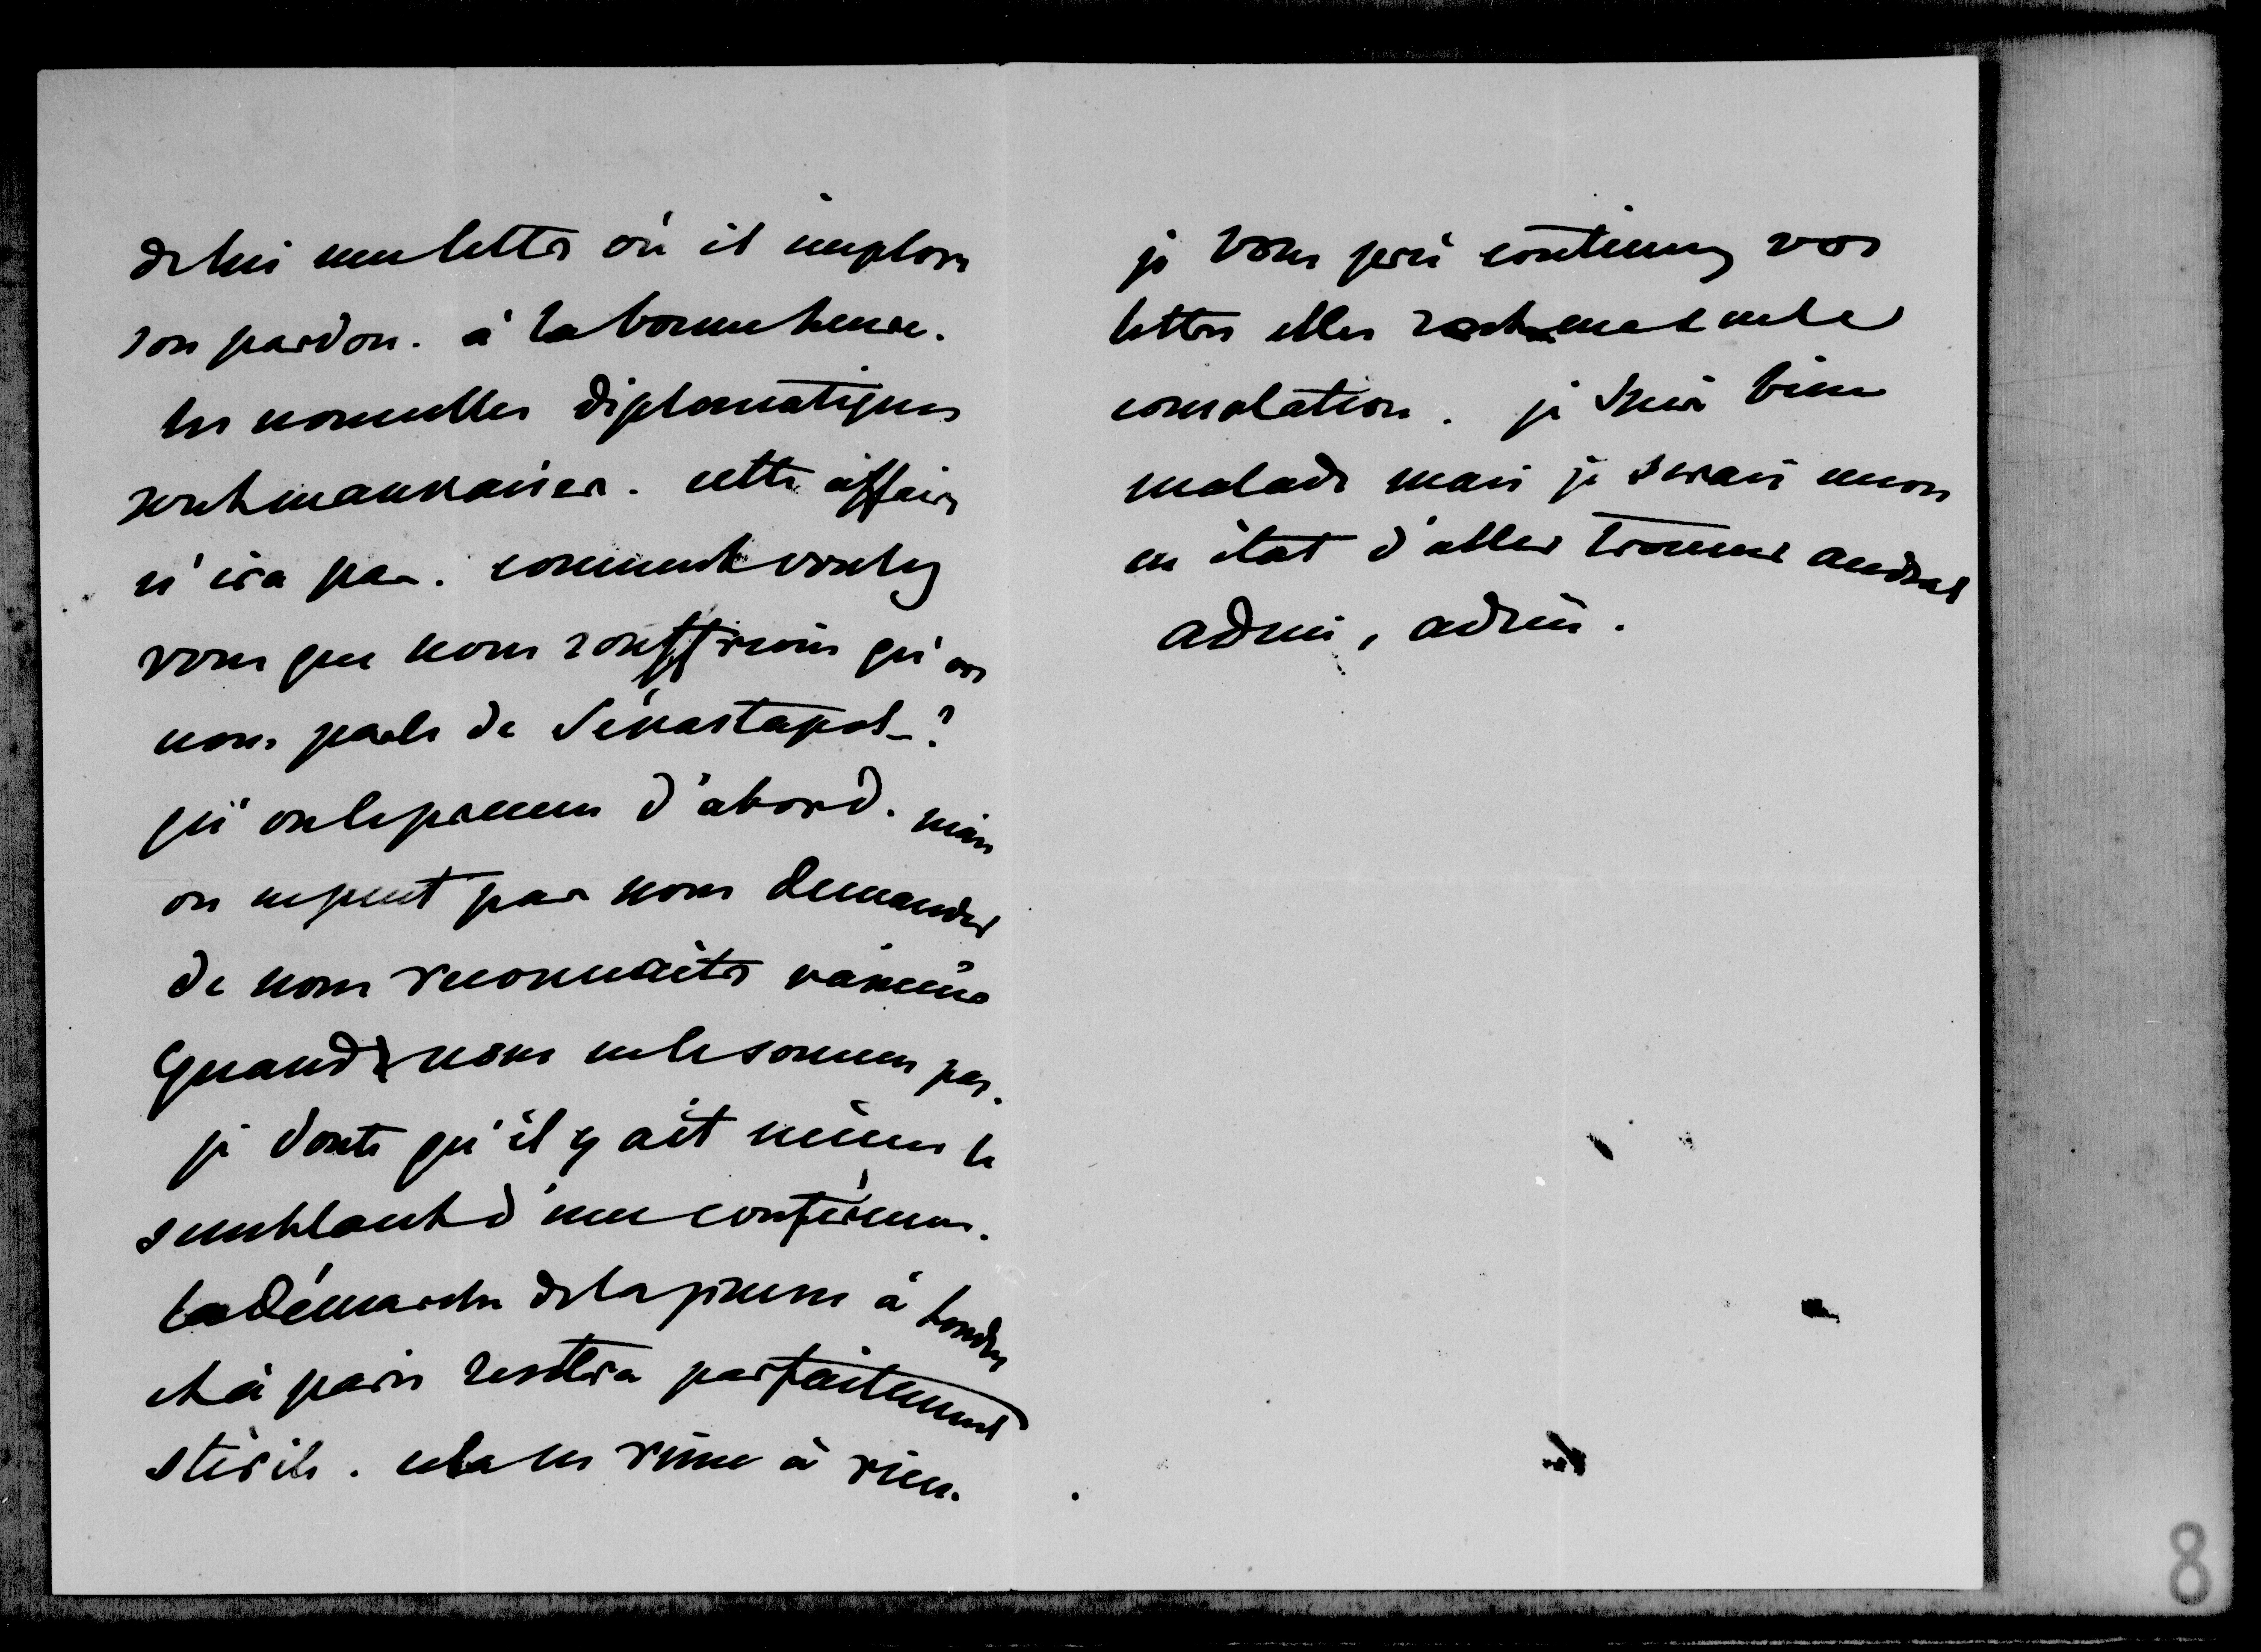 de lui une lettre où il implore
son pardon. à la bonne heure.
les nouvelles diplomatiques
sont mauvaises. cette affaire
n'ira pas. comment voulez
vous que nous souffrions qu'on
nous parle de Sévastapol ?
qu'on le prenne d'abord. mais
on ne peut pas nous demander
de nous reconnaitre vaincus
quand nous ne le sommes pas.
je doute qu'il y ait même le
semblant d'une conférence.
la démarche de la prusse à Londres
et à paris restera parfaitement
stérile. cela ne rime à rien.
je vous prie continuez vos
lettres elles sont ma seule
consolation. je suis bien
malade mais je serais encore
en état d'aller trouver andral
adieu, adieu.
8